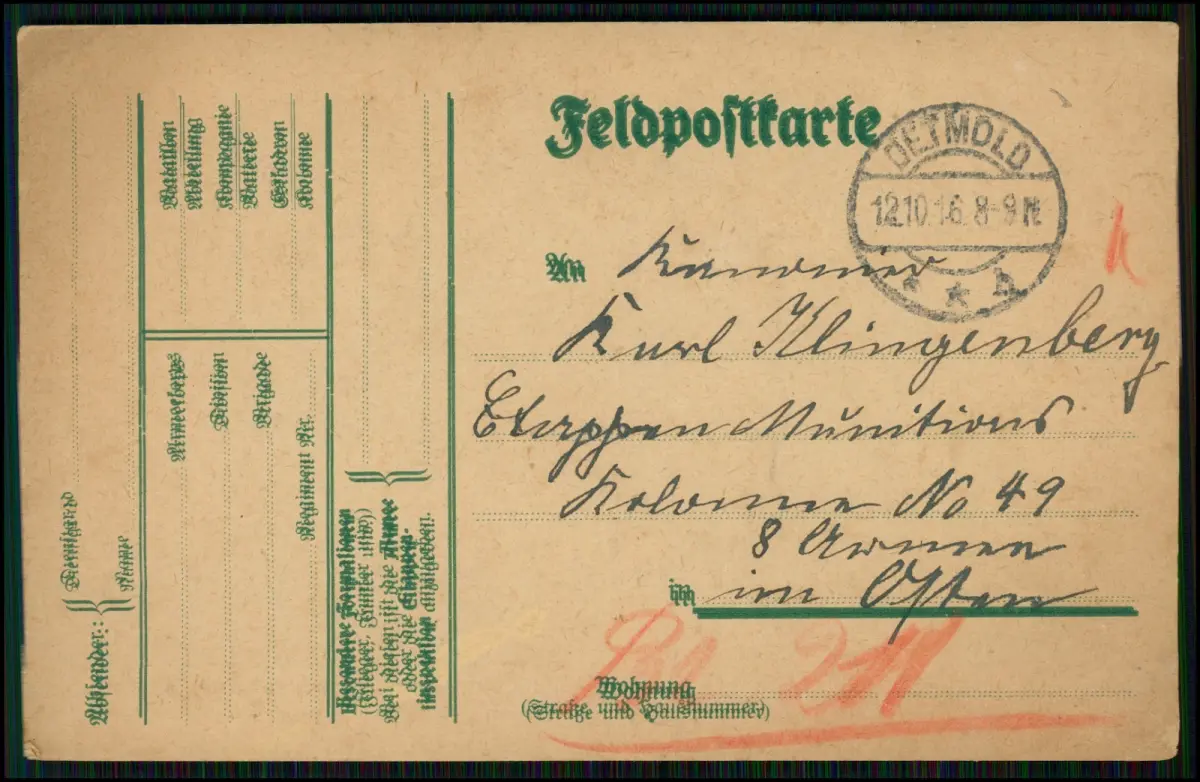 Feldpostkarte
DETMOLD
12.10.16. 8-9 N.
* * h
An Kanonier
Karl Klingenberg
Etappen Munitions
Kolonne No 49
8 Armee
in im Osten
Wohnung
(Straße und Hausnummer)
Absender:
Dienstgrad
Name
Armeekorps
Division
Brigade
Regiment Nr.
Bataillon
Abteilung
Kompagnie
Batterie
Eskadron
Kolonne
Besondere Formationen
(Flieger, Funker usw.)
Bei diesen ist die Armee
oder die Etappen-
inspektion anzugeben.